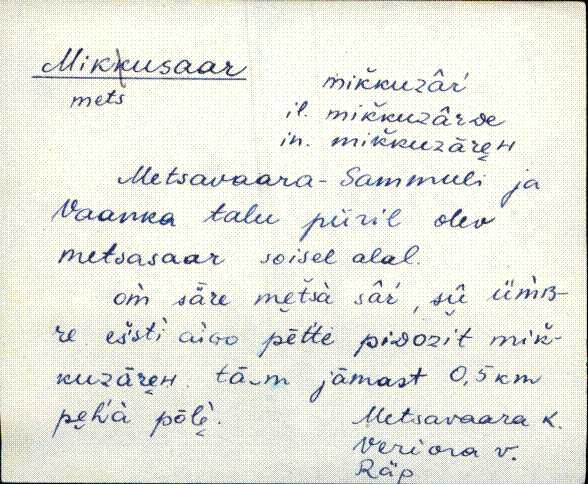 Mikkusaar
mets
mikkuzâŕ
il. mikkuzârde
in. mikkuzāręн
Metsavaara-Sammuli ja
Vaanka talu piiril olev
metsasaar soisel alal.
om̀ sāre mętsà sâŕ, sū̂ üm̀в-
re ešsti aìvo pēt́t́e piᴅozit mik-
kuzāręн. tā‿m jāmast 0,5 km
pęh́à pōlè.
Metsavaara k.
Veriora v.
Räp